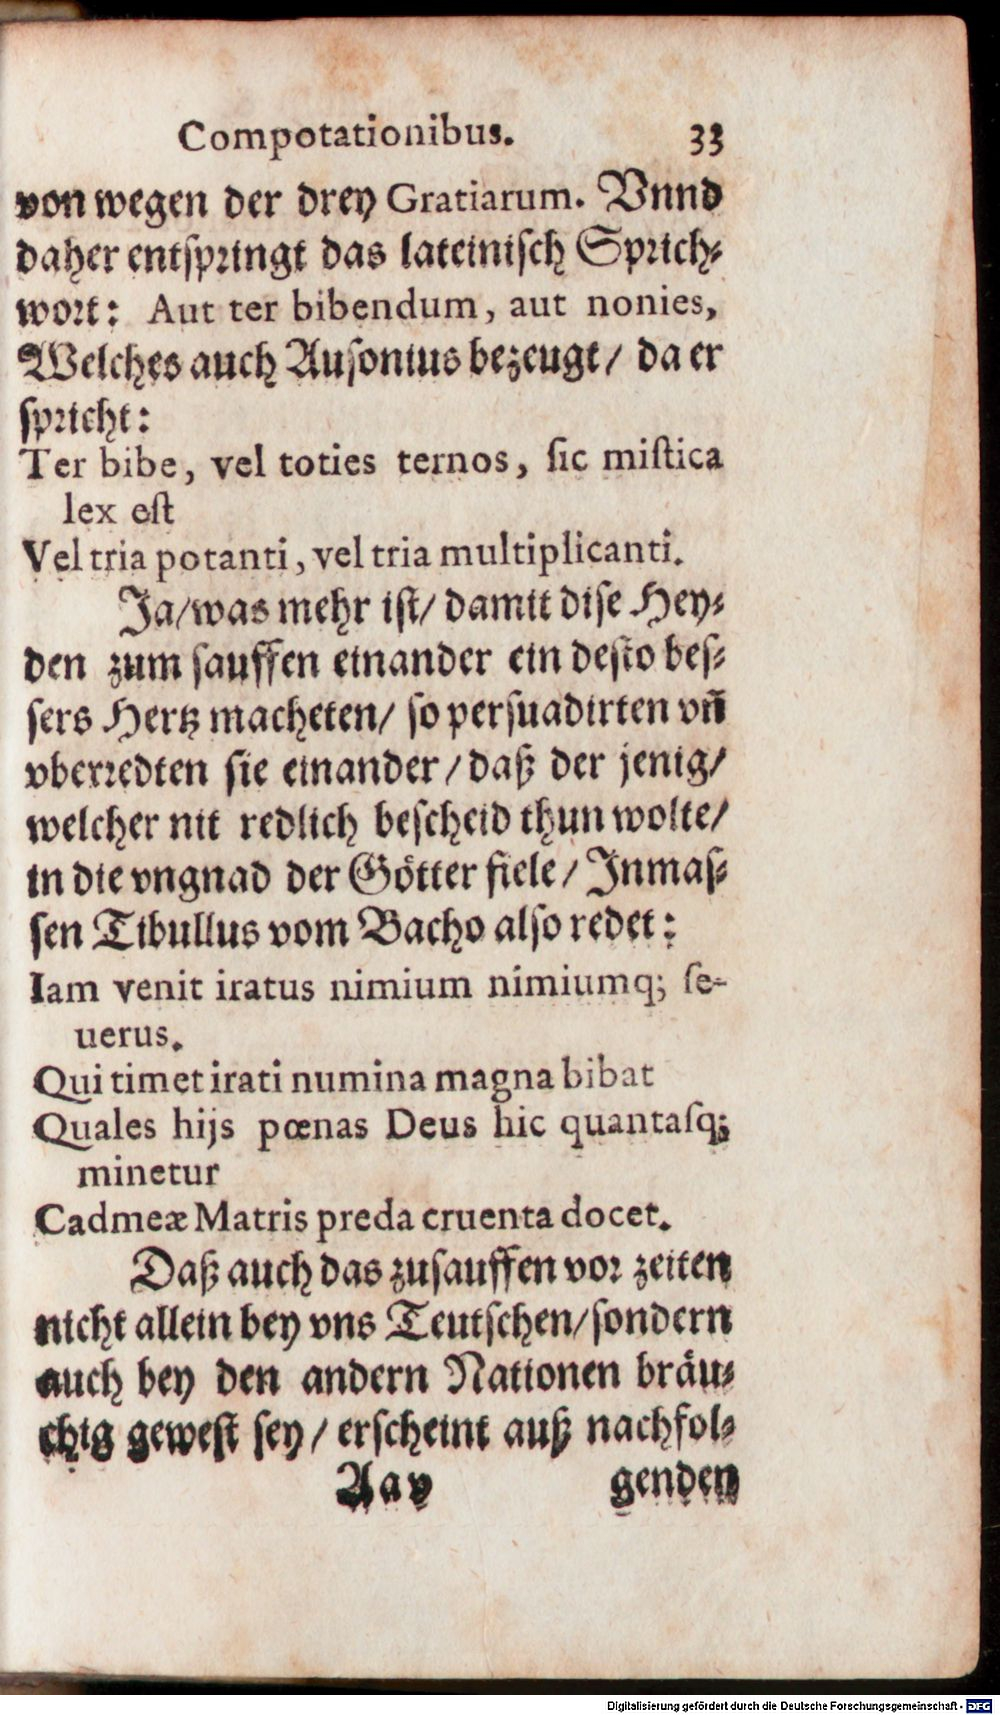 Compotationibus. 33
von wegen der drey Gratiarum. Vnnd
daher entspringt das lateinisch Sprich⸗
wort: Aut ter bibendum, aut nonies,
Welches auch Ausonius bezeugt/ da er
spricht:
Ter bibe, vel toties ternos, sic mistica
lex est
Vel tria potanti, vel tria multiplicanti.
Ja/was mehr ist/ damit dise Hey⸗
den zum sauffen einander ein desto bes⸗
sers Hertz macheten/ so persuadirten vñ
vberredten sie einander/daß der jenig/
welcher nit redlich bescheid thun wolte/
in die vngnad der Götter fiele/ Inmas⸗
sen Tibullus vom Bacho also redet:
Iam venit iratus nimium nimiumq; se-
uerus.
Qui timet irati numina magna bibat
Quales hijs pœnas Deus hic quantasq;
minetur
Cadmeæ Matris preda cruenta docet.
Daß auch das zusauffen vor zeiten
nicht allein bey vns Teutschen/sondern
auch bey den andern Nationen bräu⸗
chig gewest sey/ erscheint auß nachfol⸗
Aav genden
Digitalisierung gefördert durch die Deutsche Forschungsgemeinschaft - DFG